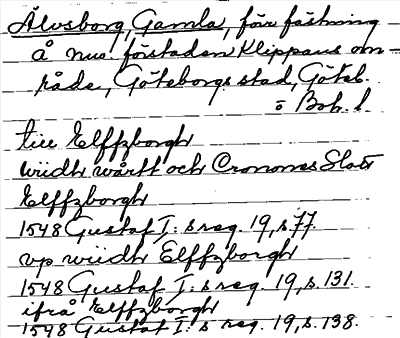 Älvsborg, Gamla, förr fästning
å nuv. förstaden Klippans om-
råde, Göteborgs stad, Göteb.
o Boh. l.
till Elffzborgh
wiidh wårtt och Cronones Slott
Elffzborgh
1548 Gustaf I: s reg. 19, s. 77.
vp wiidh Elffzborgh
1548 Gustaf I: s reg. 19, s. 131.
ifrå Elffzborgh
1548 Gustaf I: s reg. 19, s. 138.